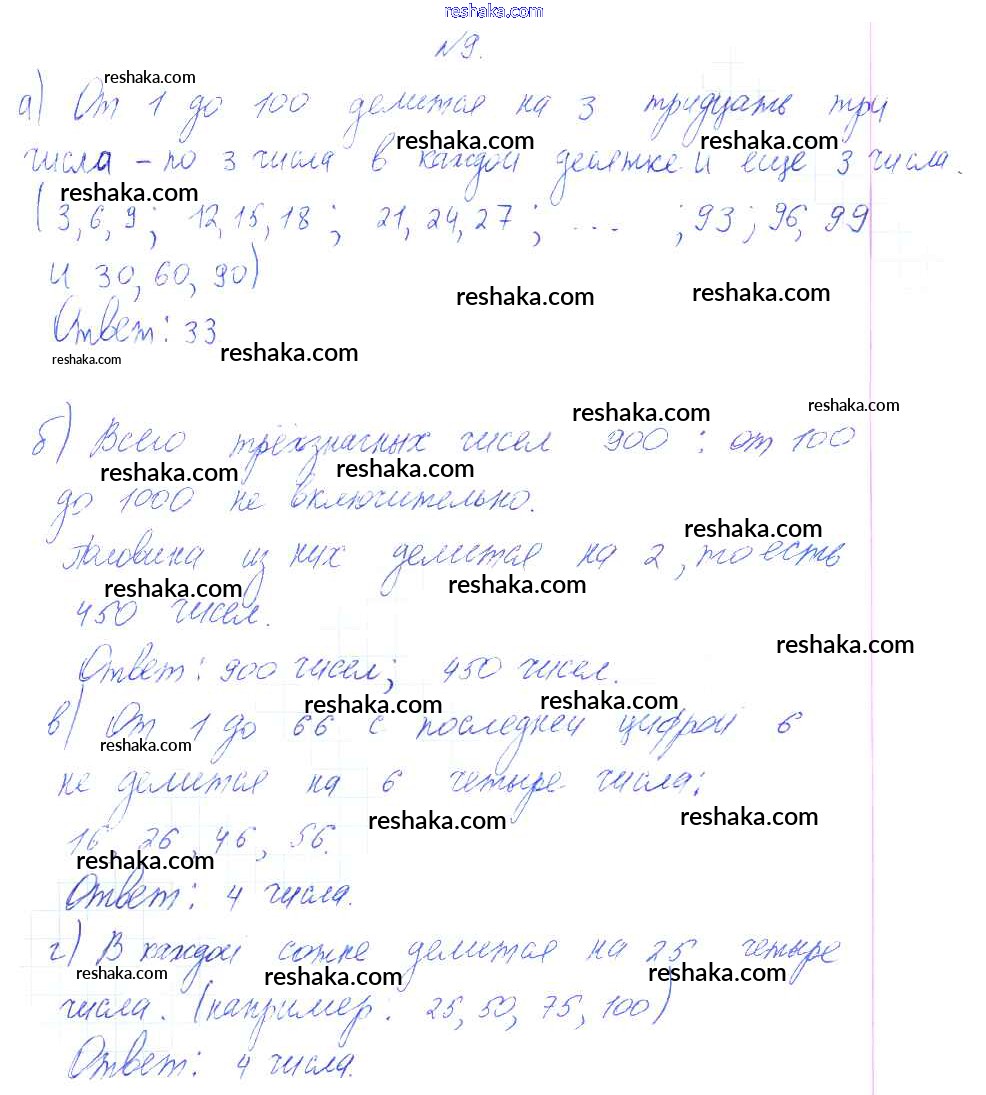 reshaka.com
№9.
reshaka.com
а) От 1 до 100 делится на 3 тридцать три
reshaka.com reshaka.com
числа – по 3 числа в каждой десятке и еще 3 числа.
reshaka.com
(3, 6, 9; 12, 15, 18; 21, 24, 27; ... ; 93; 96, 99
и 30, 60, 90)
reshaka.com reshaka.com
Ответ: 33
reshaka.com reshaka.com
reshaka.com reshaka.com
б) Всего трёхзначных чисел 900: от 100
reshaka.com reshaka.com
до 1000 не включительно.
reshaka.com
Половина из них делится на 2, то есть
reshaka.com reshaka.com
450 чисел.
reshaka.com
Ответ: 900 чисел; 450 чисел.
reshaka.com reshaka.com
в) От 1 до 66 с последней цифрой 6
reshaka.com
не делится на 6 четыре числа:
reshaka.com reshaka.com
16, 26, 46, 56.
reshaka.com
Ответ: 4 числа.
г) В каждой сотне делится на 25 четыре
reshaka.com reshaka.com reshaka.com
числа. (например: 25, 50, 75, 100)
Ответ: 4 числа.